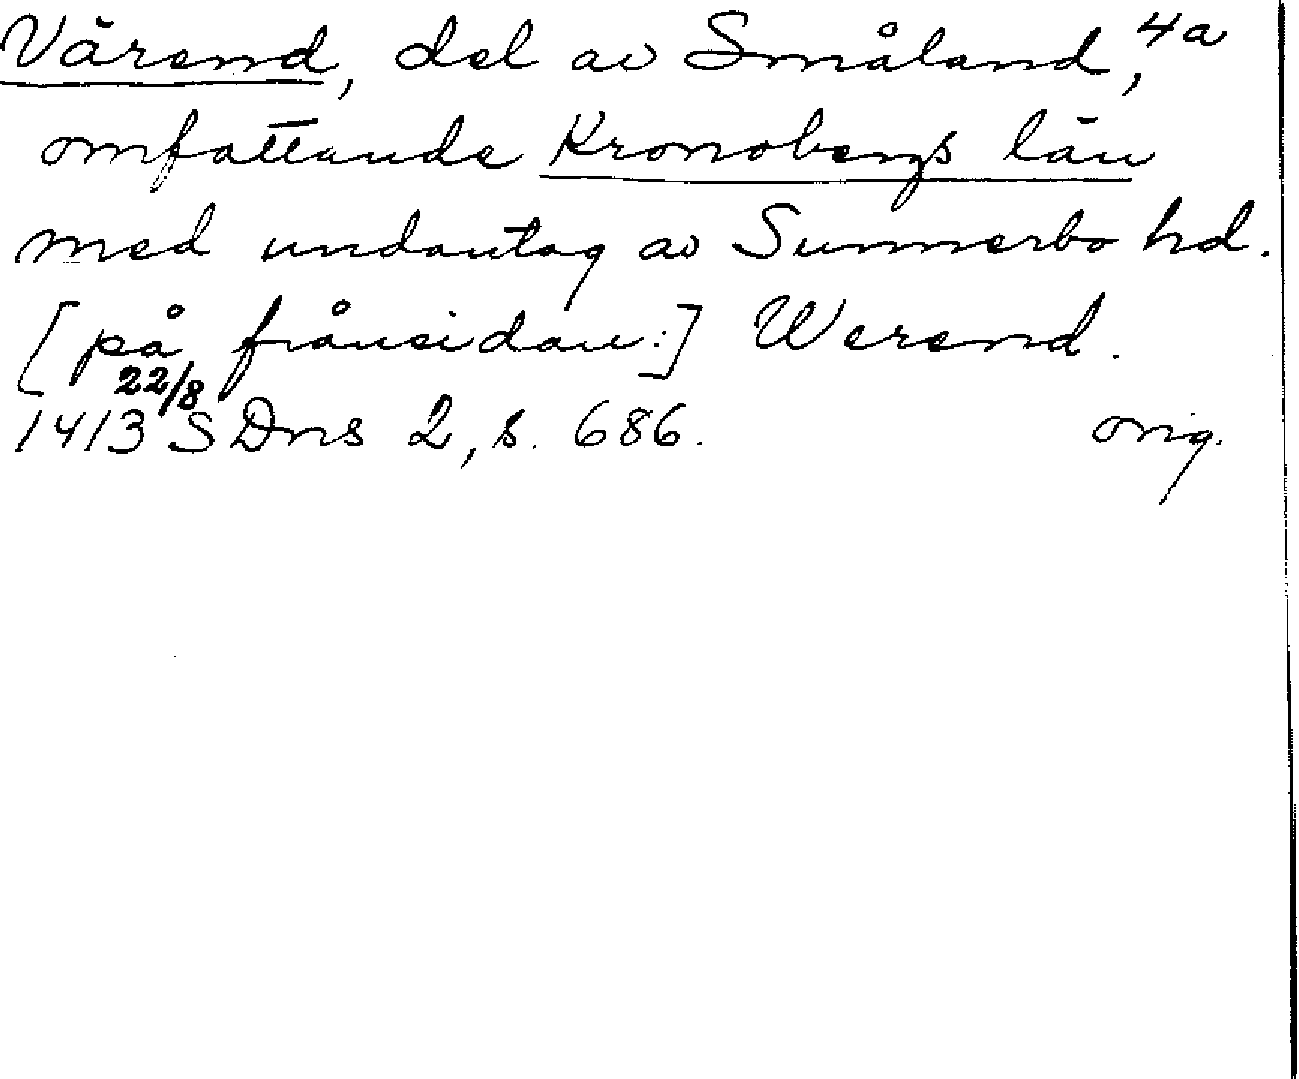 Värend, del av Småland, 4a
omfattande Kronobergs län
med undantag av Sunnerbo hd.
[på frånsidan:] Werend.
22/8
1413 SDns 2, s. 686. orig.